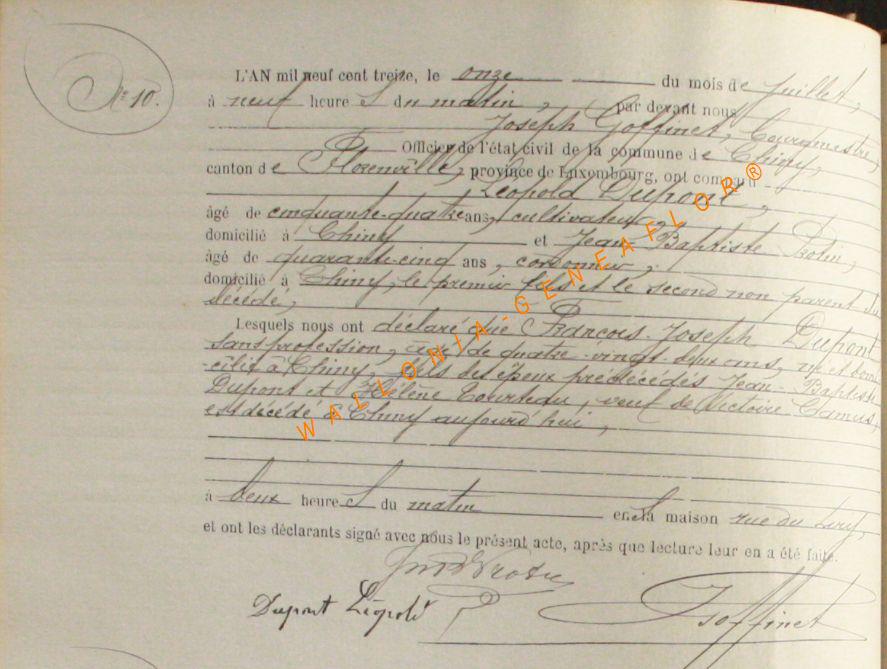 N° 10.
L'AN mil neuf cent treize, le onze du mois de Juillet,
à neuf heure s du matin, par devant nous
Joseph Goffinet, Bourgmestre,
Officier de l'état civil de la commune de Chiny,
canton de Florenville, province de Luxembourg, ont comparu
Léopold Dupont,
âgé de cinquante-quatre ans, cultivateur,
domicilié à Chiny et Jean-Baptiste
âgé de quarante-cinq ans, cordonnier,
domicilié à Chiny, le premier fils et le second non parent du
décédé,
Lesquels nous ont déclaré que François-Joseph Dupont
sans profession, âgé de quatre-vingt deux ans, né et domi-
cilié à Chiny, fils des époux prédécédés Jean-Baptiste
Dupont et Hélène veuf de Victoire Camus,
est décédé à Chiny aujourd'hui,
à deux heure s du matin en sa maison rue du
et ont les déclarants signé avec nous le présent acte, après que lecture leur en a été faite.
Dupont Léopold
J Goffinet
WALLONIA-GENEAFLOR®